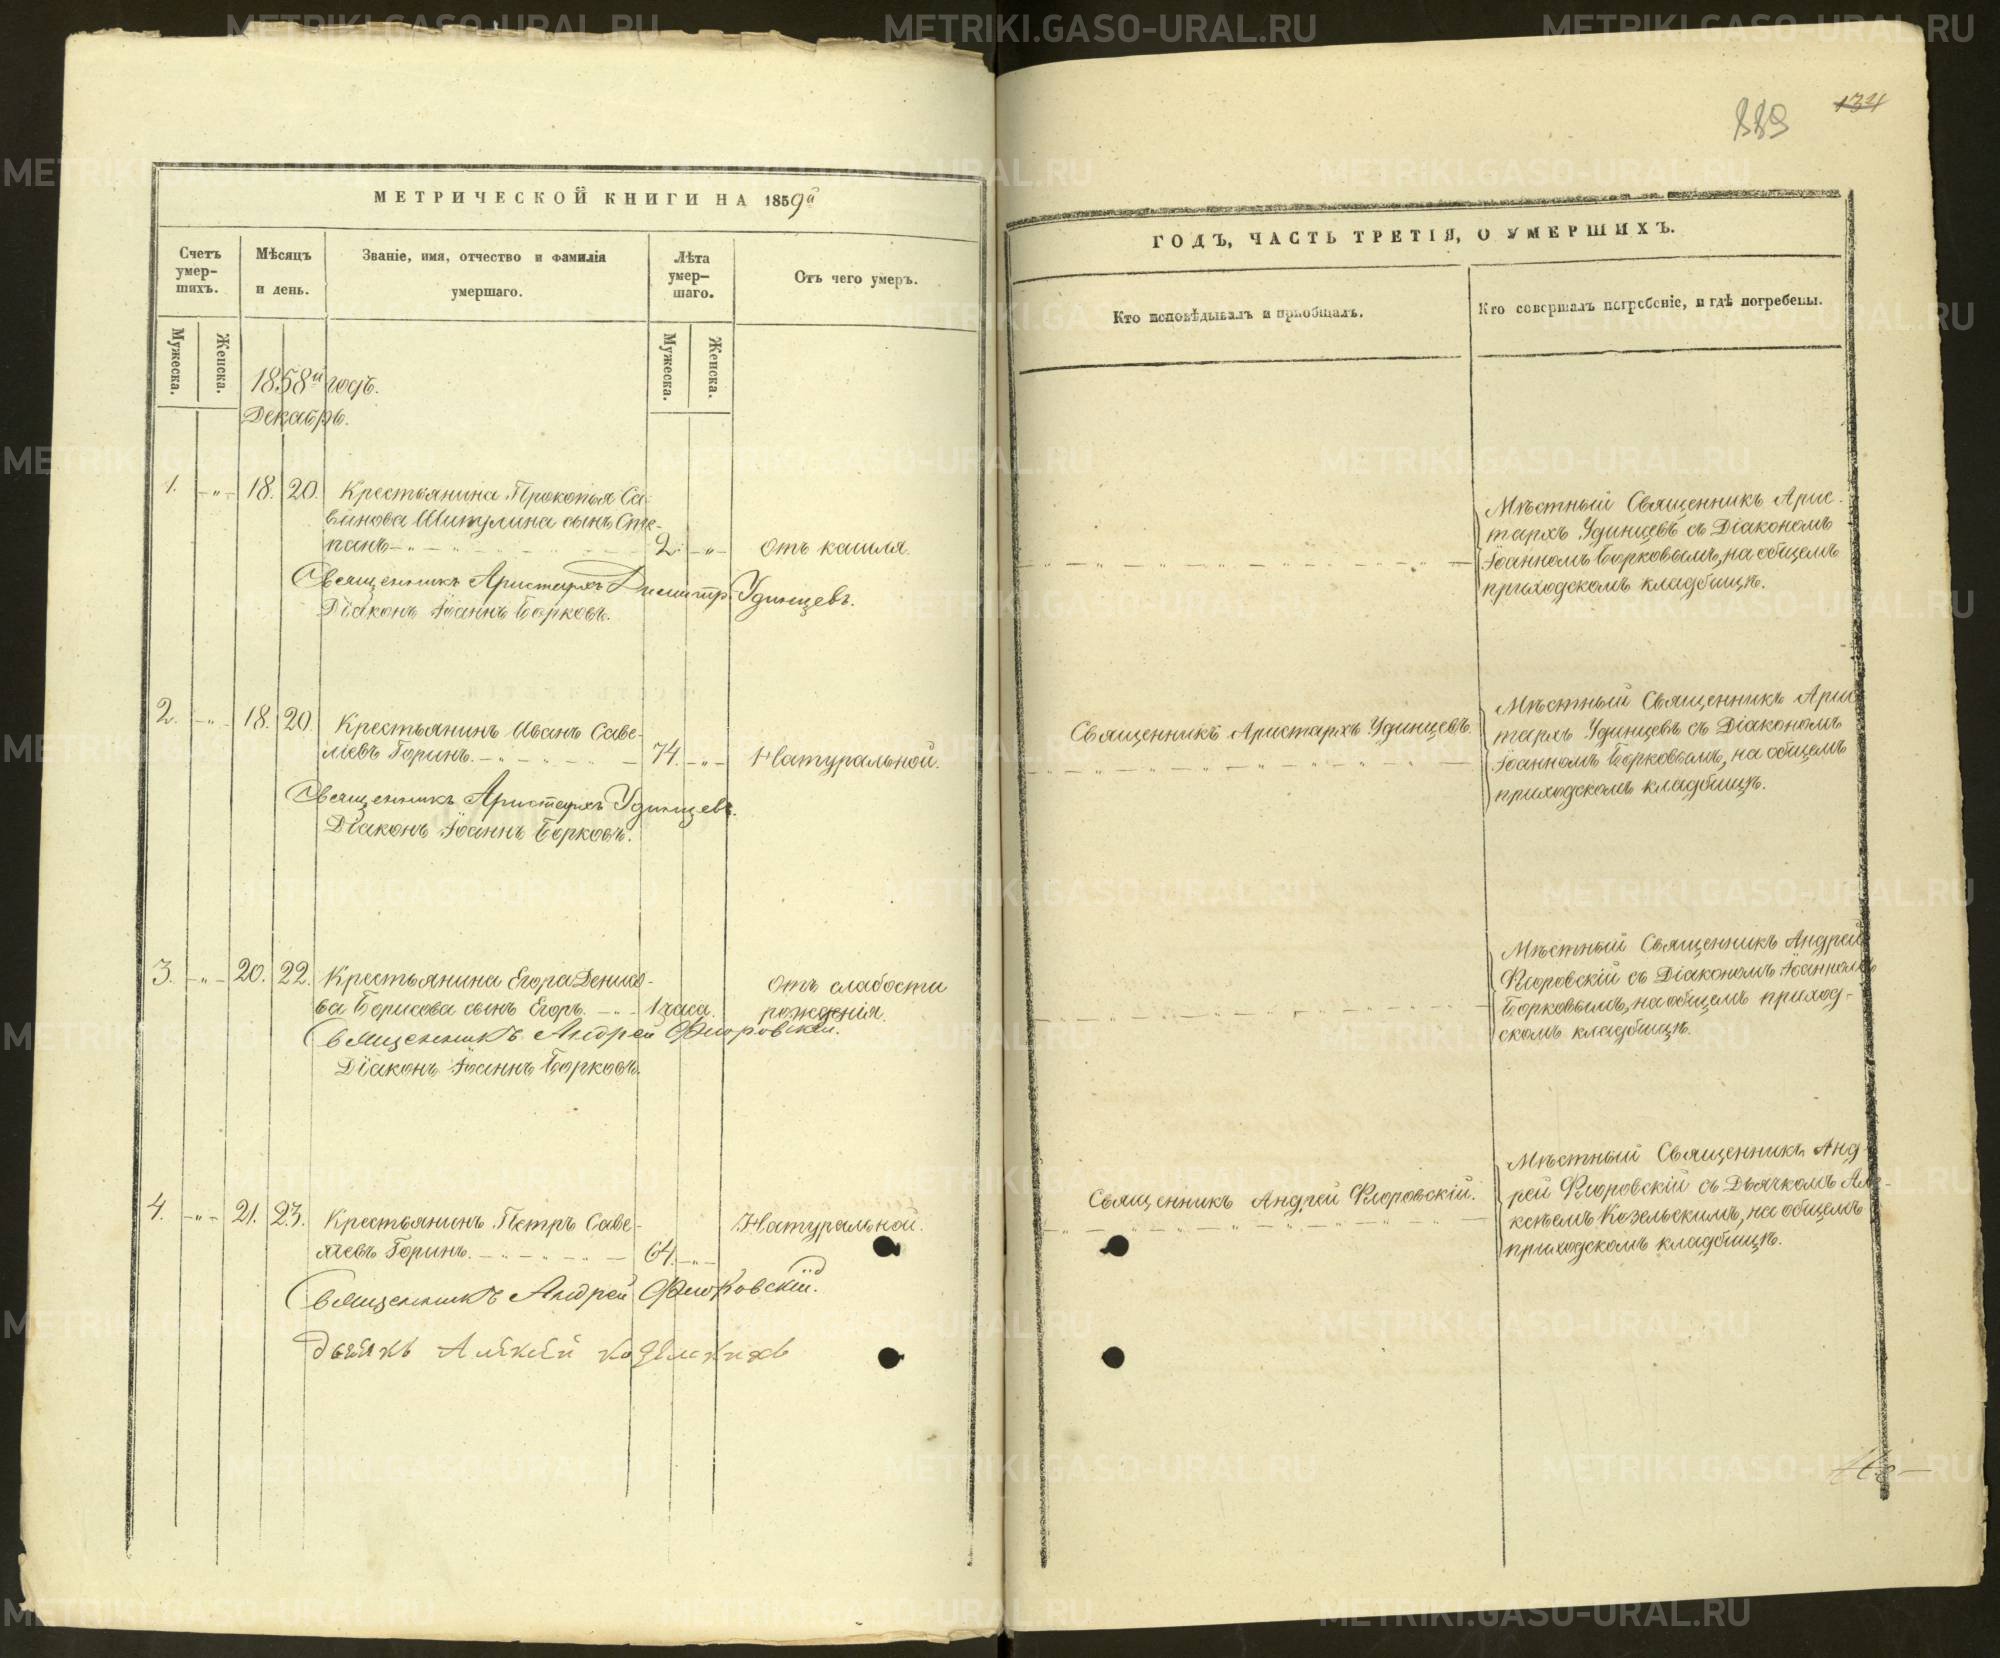 889 134
МЕТРИЧЕСКОЙ КНИГИ НА 1859й
Счетъ умер-шихъ.
Мѣсяцъ и день.
Званіе, имя, отчество и фамилія умершаго.
Лѣта умер-шаго.
Отъ чего умеръ.
Мужеска.
Женска.
Мужеска.
Женска.
1858й годъ.
Декабрь.
1. -„- 18. 20. Крестьянина Прокопья Са-
винова Шипулина сынъ Сте-
панъ 2. -„- Отъ кашля.
Священникъ Аристархъ Димитр. Удинцевъ.
Діаконъ Іоаннъ Борковъ.
2. -„- 18. 20. Крестьянинъ Иванъ Саве-
ліевъ Горинъ. 74. -„- Натуральной.
Священникъ Аристархъ Удинцевъ.
Діаконъ Іоаннъ Борковъ.
3. -„- 20. 22. Крестьянина Егора Денисо-
ва Борисова сынъ Егоръ. 1 часа. Отъ слабости
рожденія.
Священникъ Андрей Флоровскій.
Діаконъ Іоаннъ Борковъ.
4. -„- 21. 23. Крестьянинъ Петръ Саве-
ліевъ Горинъ. 64. -„- Натуральной.
Священникъ Андрей Флоровскій.
ГОДЪ, ЧАСТЬ ТРЕТІЯ, О УМЕРШИХЪ.
Кто исповѣдывалъ и пріобщалъ.
Кто совершалъ погребеніе, и гдѣ погребены.
Мѣстный Священникъ Арис-
тархъ Удинцевъ съ Діакономъ
Іоанномъ Борковымъ, на общемъ
приходскомъ кладбищѣ.
Священникъ Аристархъ Удинцевъ.
Мѣстный Священникъ Арис
тархъ Удинцевъ съ Діакономъ
Іоанномъ Борковымъ, на общемъ
приходскомъ кладбищѣ.
Мѣстный Священникъ Андрей
Флоровскій съ Діакономъ Іоанномъ
Борковымъ, на общемъ приход-
скомъ кладбищѣ.
Священникъ Андрей Флоровскій.
Мѣстный Священникъ Анд-
рей Флоровскій съ Дьячкомъ Але-
ксѣемъ Козельскимъ, на общемъ
приходскомъ кладбищѣ.
METRIKI.GASO-URAL.RU